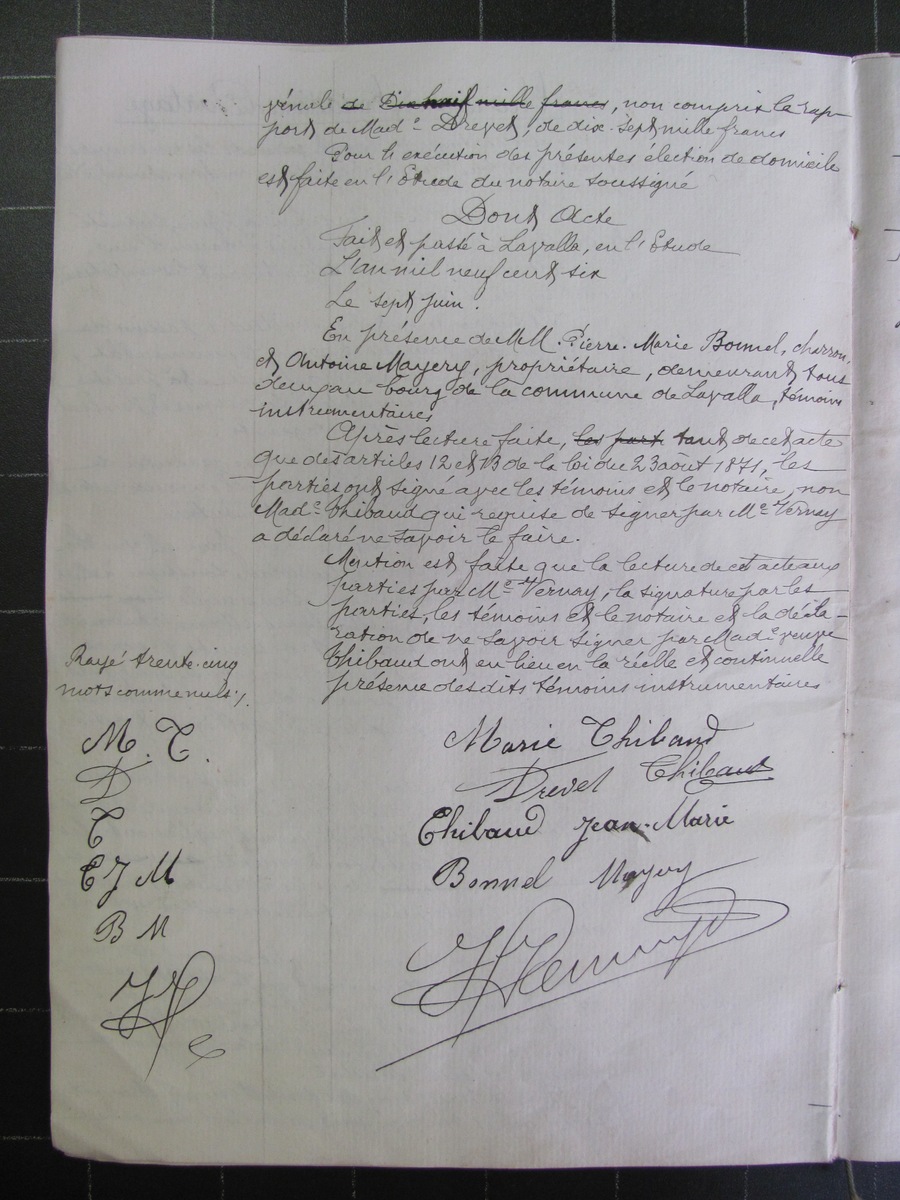 vénale de Dix huit mille francs, non compris le rap-
port de Mad.e Drevet, de dix-sept mille francs
Pour l'exécution des présentes élection de domicile
est faite en l'Etude du notaire soussigné
Dont Acte
Fait et passé à Lavalla, en l'Etude
L'an mil neuf cent six
Le sept juin.
En présence de MM. Pierre-Marie Bonnel, charron,
et Antoine Mayery, propriétaire, demeurant tous
deux au bourg de la commune de Lavalla, témoins
instrumentaires
Après lecture faite, les part tant de cet acte
que des articles 12 et 13 de la loi du 23 août 1871, les
parties ont signé avec les témoins et le notaire, non
Mad.e Thibaud qui requise de signer par M.e Vernay
a déclaré ne savoir le faire.
Mention est faite que la lecture de cet acte aux
parties par M.e Vernay, la signature par les
parties, les témoins et le notaire et la décla-
ration de ne savoir signer par Mad.e veuve
Thibaud ont eu lieu en la réelle et continuelle
présence des dits témoins instrumentaires
Rayé trente-cinq
mots comme nuls./.
M. T.
D
T
T J M
B M
Marie Thibaud
Drevet Thibaud
Thibaud Jean-Marie
Bonnel Mayery